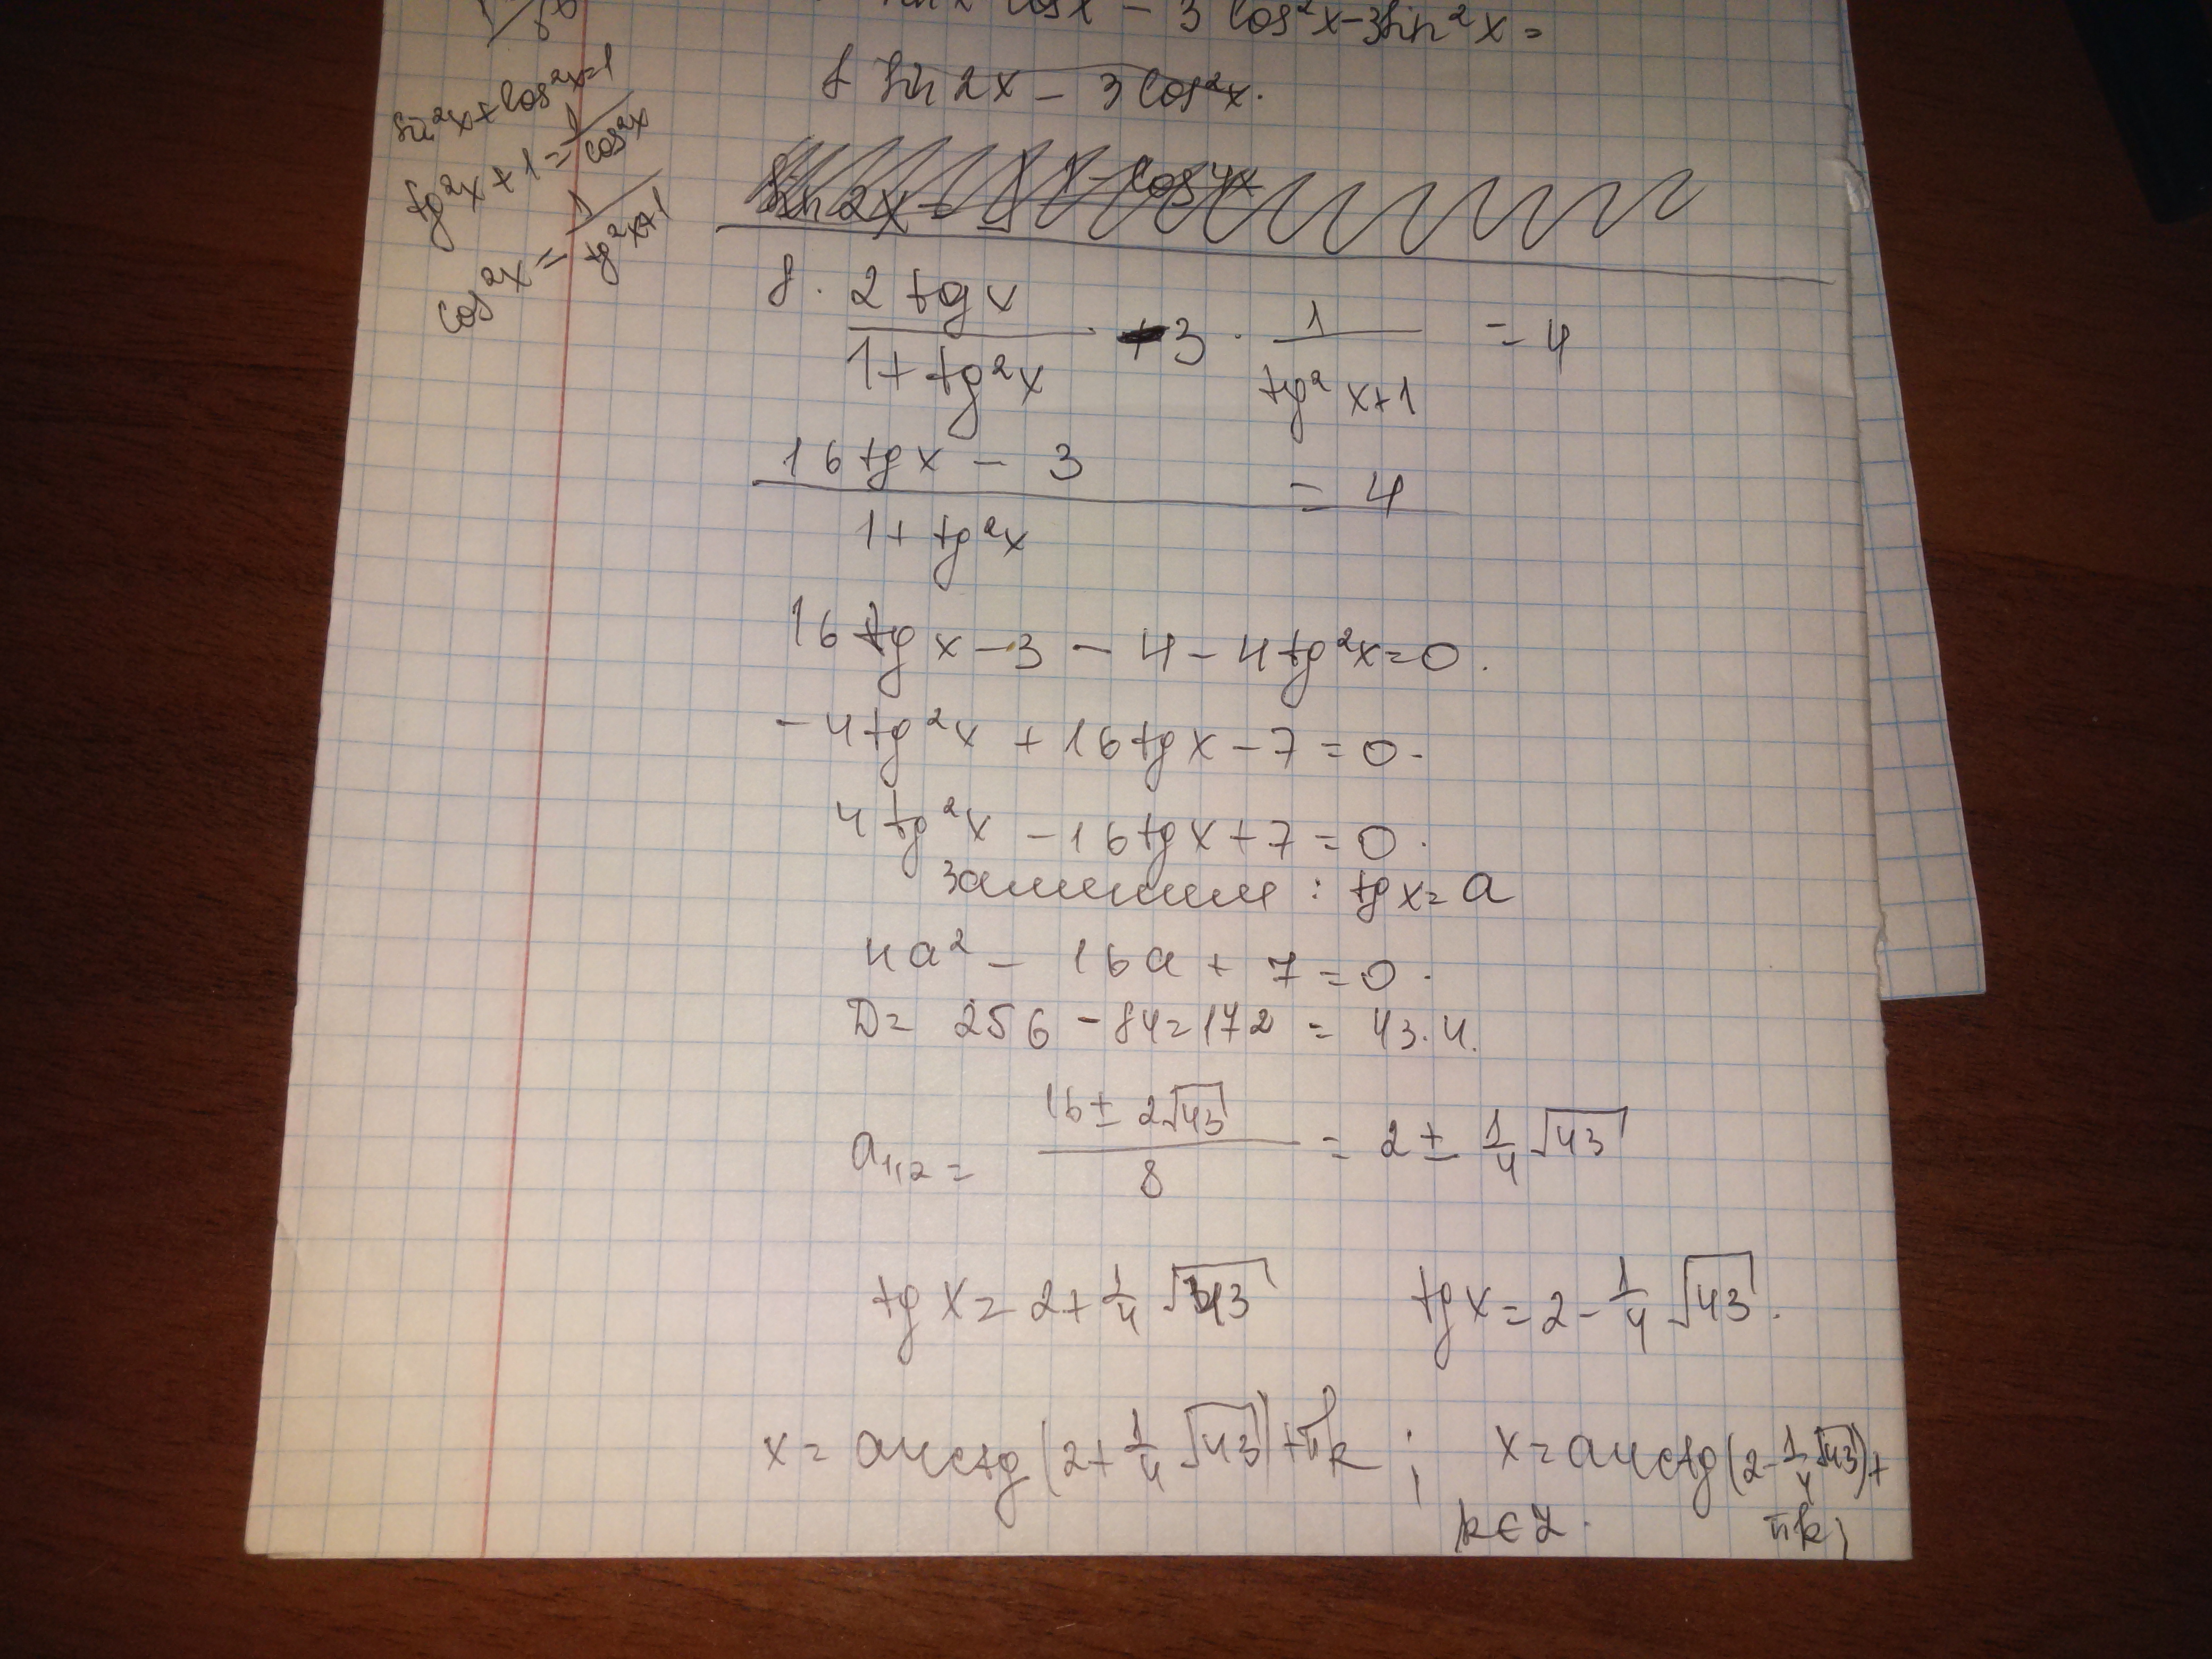 cos x - 3 cos²x - 3sin²x =
8 sin 2x - 3 cos²x.
sin²x + cos²x = 1
tg²x + 1 = 1/cos²x
cos²x = 1/(tg²x+1)
sin 2x = 1 - cos 4x
8 · (2 tg x)/(1 + tg²x) - 3 · 1/(tg²x+1) = 4
(16 tg x - 3)/(1 + tg²x) = 4
16 tg x - 3 - 4 - 4 tg²x = 0.
-4 tg²x + 16 tg x - 7 = 0.
4 tg²x - 16 tg x + 7 = 0.
Заменим : tg x = a
4a² - 16a + 7 = 0.
D = 256 - 84 = 172 = 43·4.
a₁,₂ = (16 ± 2√43)/8 = 2 ± 1/4 √43
tg x = 2 + 1/4 √43 tg x = 2 - 1/4 √43.
x = arctg(2 + 1/4 √43) + πk ; x = arctg(2 - 1/4 √43) +
k ∈ Z. πk;